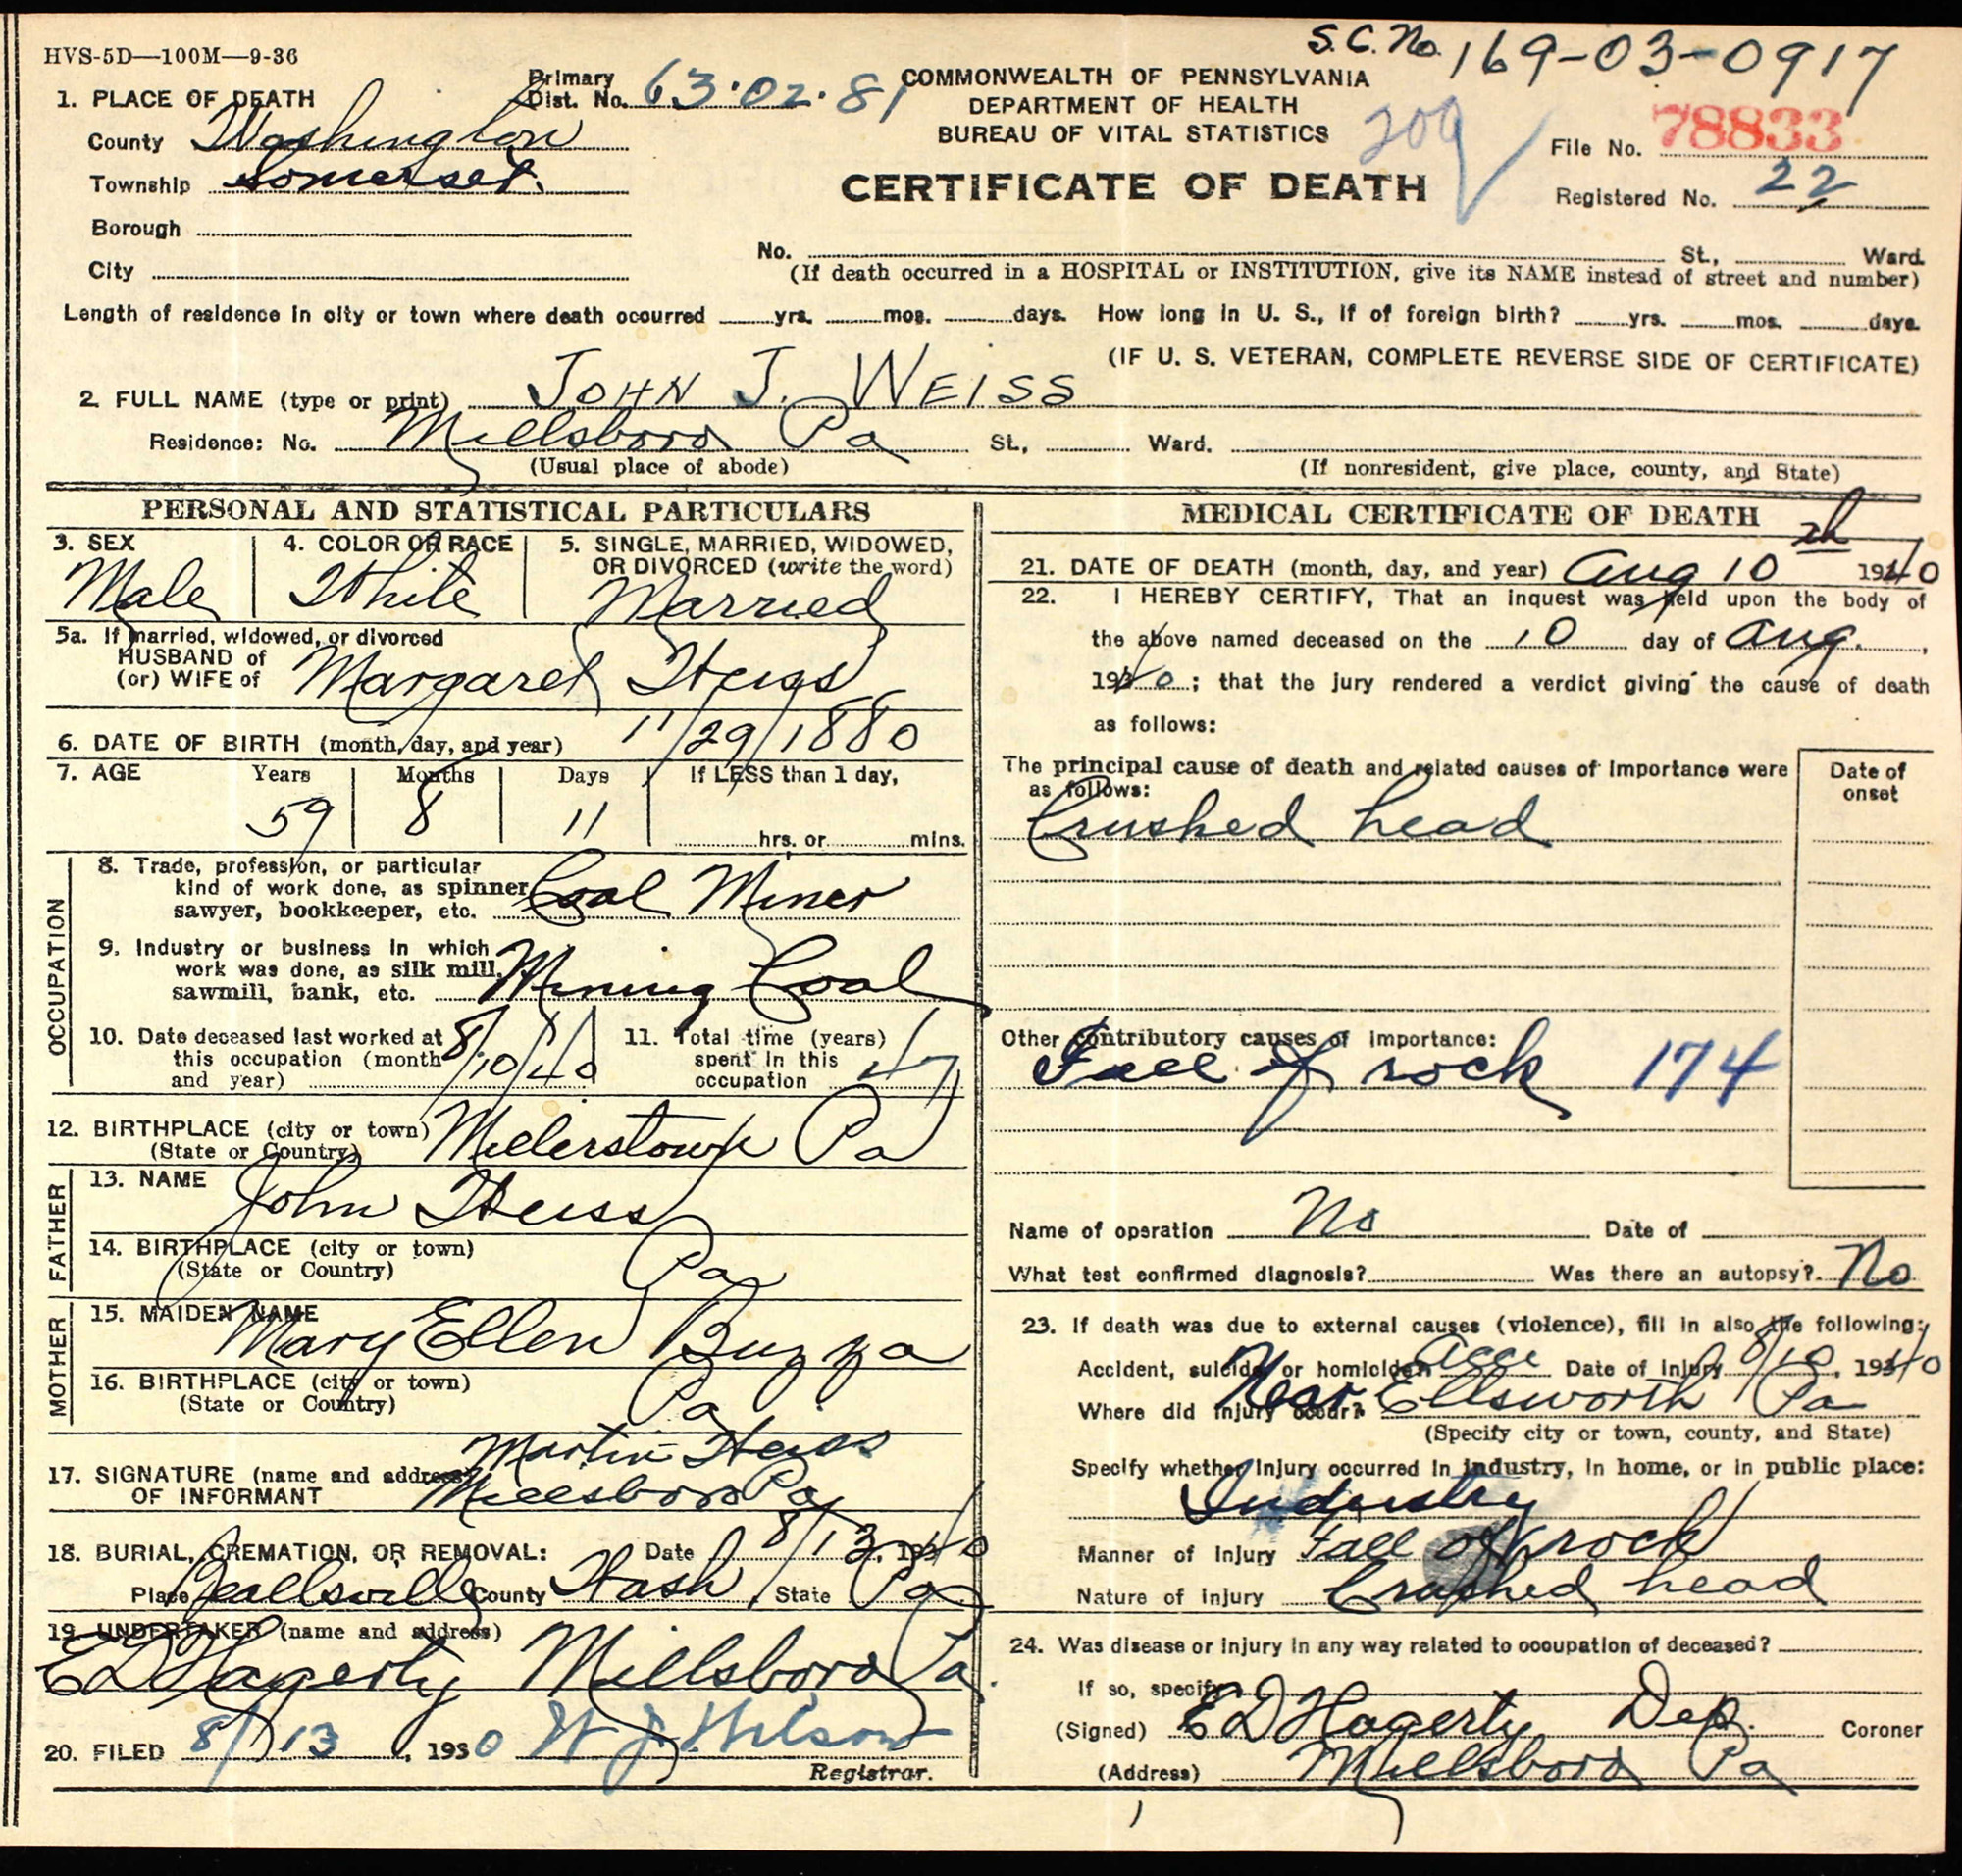 HVS-5D—100M—9-36
S.C. No. 169-03-0917
Primary Dist. No. 63.02.81
COMMONWEALTH OF PENNSYLVANIA
DEPARTMENT OF HEALTH
BUREAU OF VITAL STATISTICS
209
CERTIFICATE OF DEATH
File No. 78833
Registered No. 22
1. PLACE OF DEATH
County Washington
Township Somerset.
Borough
City
No. St., Ward.
(If death occurred in a HOSPITAL or INSTITUTION, give its NAME instead of street and number)
Length of residence in city or town where death occurred yrs. mos. days. How long in U. S., if of foreign birth? yrs. mos. days.
(IF U. S. VETERAN, COMPLETE REVERSE SIDE OF CERTIFICATE)
2. FULL NAME (type or print) JOHN J. WEISS
Residence: No. Millsboro Pa St., Ward.
(Usual place of abode) (If nonresident, give place, county, and State)
PERSONAL AND STATISTICAL PARTICULARS
3. SEX 4. COLOR OR RACE 5. SINGLE, MARRIED, WIDOWED,
OR DIVORCED (write the word)
Male White Married
5a. If married, widowed, or divorced
HUSBAND of
(or) WIFE of Margaret Weiss
6. DATE OF BIRTH (month, day, and year) 11/29/1880
7. AGE Years Months Days If LESS than 1 day,
59 8 11 hrs. or mins.
OCCUPATION
8. Trade, profession, or particular
kind of work done, as spinner
sawyer, bookkeeper, etc. Coal Miner
9. Industry or business in which
work was done, as silk mill,
sawmill, bank, etc. Mining Coal
10. Date deceased last worked at
this occupation (month
and year) 8/10/40
11. Total time (years)
spent in this
occupation 47
12. BIRTHPLACE (city or town) Millerstown Pa
(State or Country)
FATHER
13. NAME John Weiss
14. BIRTHPLACE (city or town)
(State or Country) Pa
MOTHER
15. MAIDEN NAME Mary Ellen Buzza
16. BIRTHPLACE (city or town)
(State or Country) Pa
17. SIGNATURE (name and address)
OF INFORMANT
Martin Weiss
Millsboro Pa
18. BURIAL, CREMATION, OR REMOVAL: Date 8/13, 1940
Place Beallsville County Wash, State Pa
19. UNDERTAKER (name and address)
E D Hagerty Millsboro Pa.
20. FILED 8/13, 1930 W J. Wilson
Registrar.
MEDICAL CERTIFICATE OF DEATH
21. DATE OF DEATH (month, day, and year) Aug 10th 1940
22. I HEREBY CERTIFY, That an inquest was held upon the body of
the above named deceased on the 10 day of Aug.,
1940; that the jury rendered a verdict giving the cause of death
as follows:
The principal cause of death and related causes of importance were
as follows:
Date of
onset
Crushed head
Other contributory causes of importance:
Fall of rock 174
Name of operation No Date of
What test confirmed diagnosis? Was there an autopsy? No
23. If death was due to external causes (violence), fill in also the following:
Accident, suicide, or homicide? Acci Date of injury 8/10, 1940
Where did injury occur? Near Ellsworth Pa
(Specify city or town, county, and State)
Specify whether injury occurred in industry, in home, or in public place:
Industry
Manner of injury Fall of rock
Nature of injury Crushed head
24. Was disease or injury in any way related to occupation of deceased?
If so, specify
(Signed) E D Hagerty Dep. Coroner
(Address) Millsboro Pa